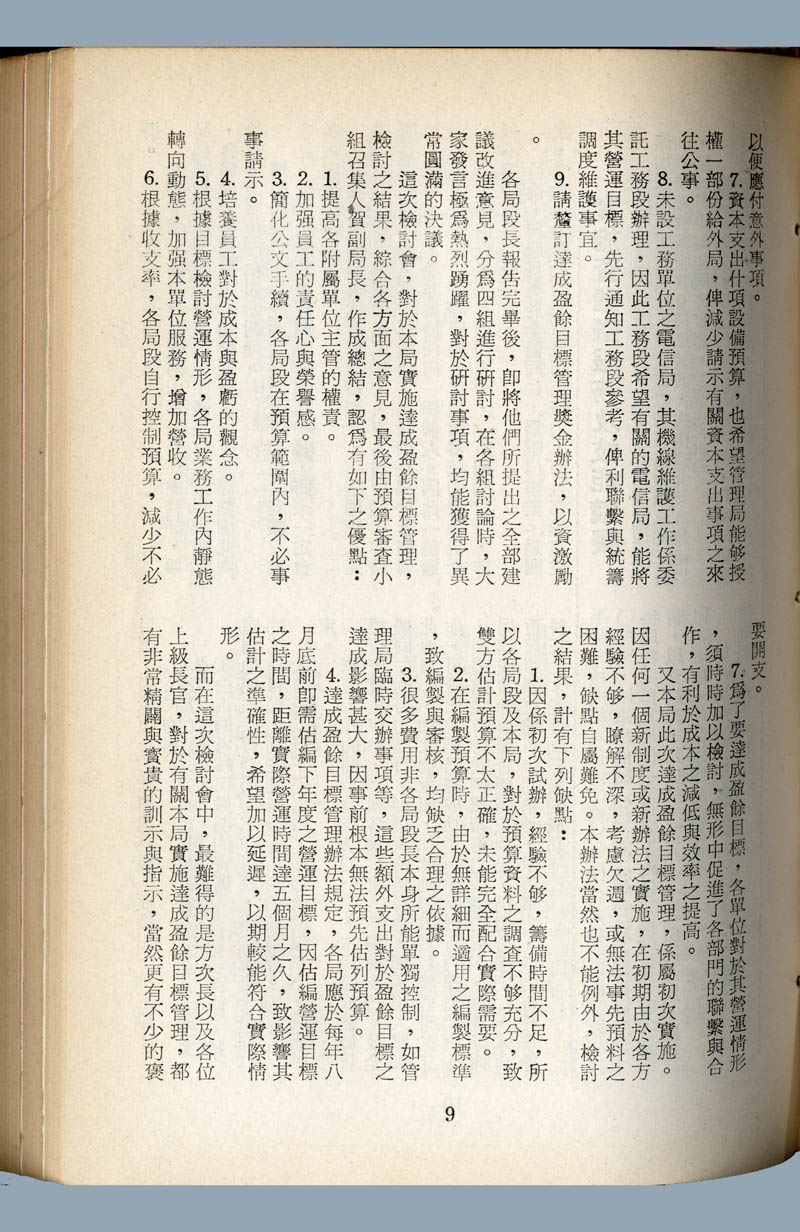 以便應付意外事項。
7.資本支出什項設備預算，也希望管理局能够授
權一部份給外局，俾減少請示有關資本支出事項之來
往公事。
8.未設工務單位之電信局，其機線維護工作係委
託工務段辦理，因此工務段希望有關的電信局，能將
其營運目標，先行通知工務段參考，俾利聯繫與統籌
調度維護事宜。
9.請釐訂達成盈餘目標管理獎金辦法，以資激勵
。
各局段長報告完畢後，卽將他們所提出之全部建
議改進意見，分爲四組進行研討，在各組討論時，大
家發言極爲熱烈踴躍，對於研討事項，均能獲得了異
常圓滿的決議。
這次檢討會，對於本局實施達成盈餘目標管理，
檢討之結果，綜合各方面之意見，最後由預算審查小
組召集人賀副局長，作成總結，認爲有如下之優點：
1.提高各附屬單位主管的權責。
2.加强員工的責任心與榮譽感。
3.簡化公文手續，各局段在預算範圍內，不必事
事請示。
4.培養員工對於成本與盈虧的觀念。
5.根據目標檢討營運情形，各局業務工作內靜態
轉向動態，加强本單位服務，增加營收。
6.根據收支率，各局段自行控制預算，減少不必
要開支。
7.爲了要達成盈餘目標，各單位對於其營運情形
，須時時加以檢討，無形中促進了各部門的聯繫與合
作，有利於成本之減低與效率之提高。
又本局此次達成盈餘目標管理，係屬初次實施。
因任何一個新制度或新辦法之實施，在初期由於各方
經驗不够，瞭解不深，考慮欠週，或無法事先預料之
困難，缺點自屬難免。本辦法當然也不能例外，檢討
之結果，計有下列缺點：
1.因係初次試辦，經驗不够，籌備時間不足，所
以各局段及本局，對於預算資料之調查不够充分，致
雙方估計預算不太正確，未能完全配合實際需要。
2.在編製預算時，由於無詳細而適用之編製標準
，致編製與審核，均缺乏合理之依據。
3.很多費用非各局段長本身所能單獨控制，如管
理局臨時交辦事項等，這些額外支出對於盈餘目標之
達成影響甚大，因事前根本無法預先估列預算。
4.達成盈餘目標管理辦法規定，各局應於每年八
月底前卽需估編下年度之營運目標，因估編營運目標
之時間，距離實際營運時間達五個月之久，致影響其
估計之準確性，希望加以延遲，以期較能符合實際情
形。
而在這次檢討會中，最難得的是方次長以及各位
上級長官，對於有關本局實施達成盈餘目標管理，都
有非常精闢與寳貴的訓示與指示，當然更有不少的褒
9